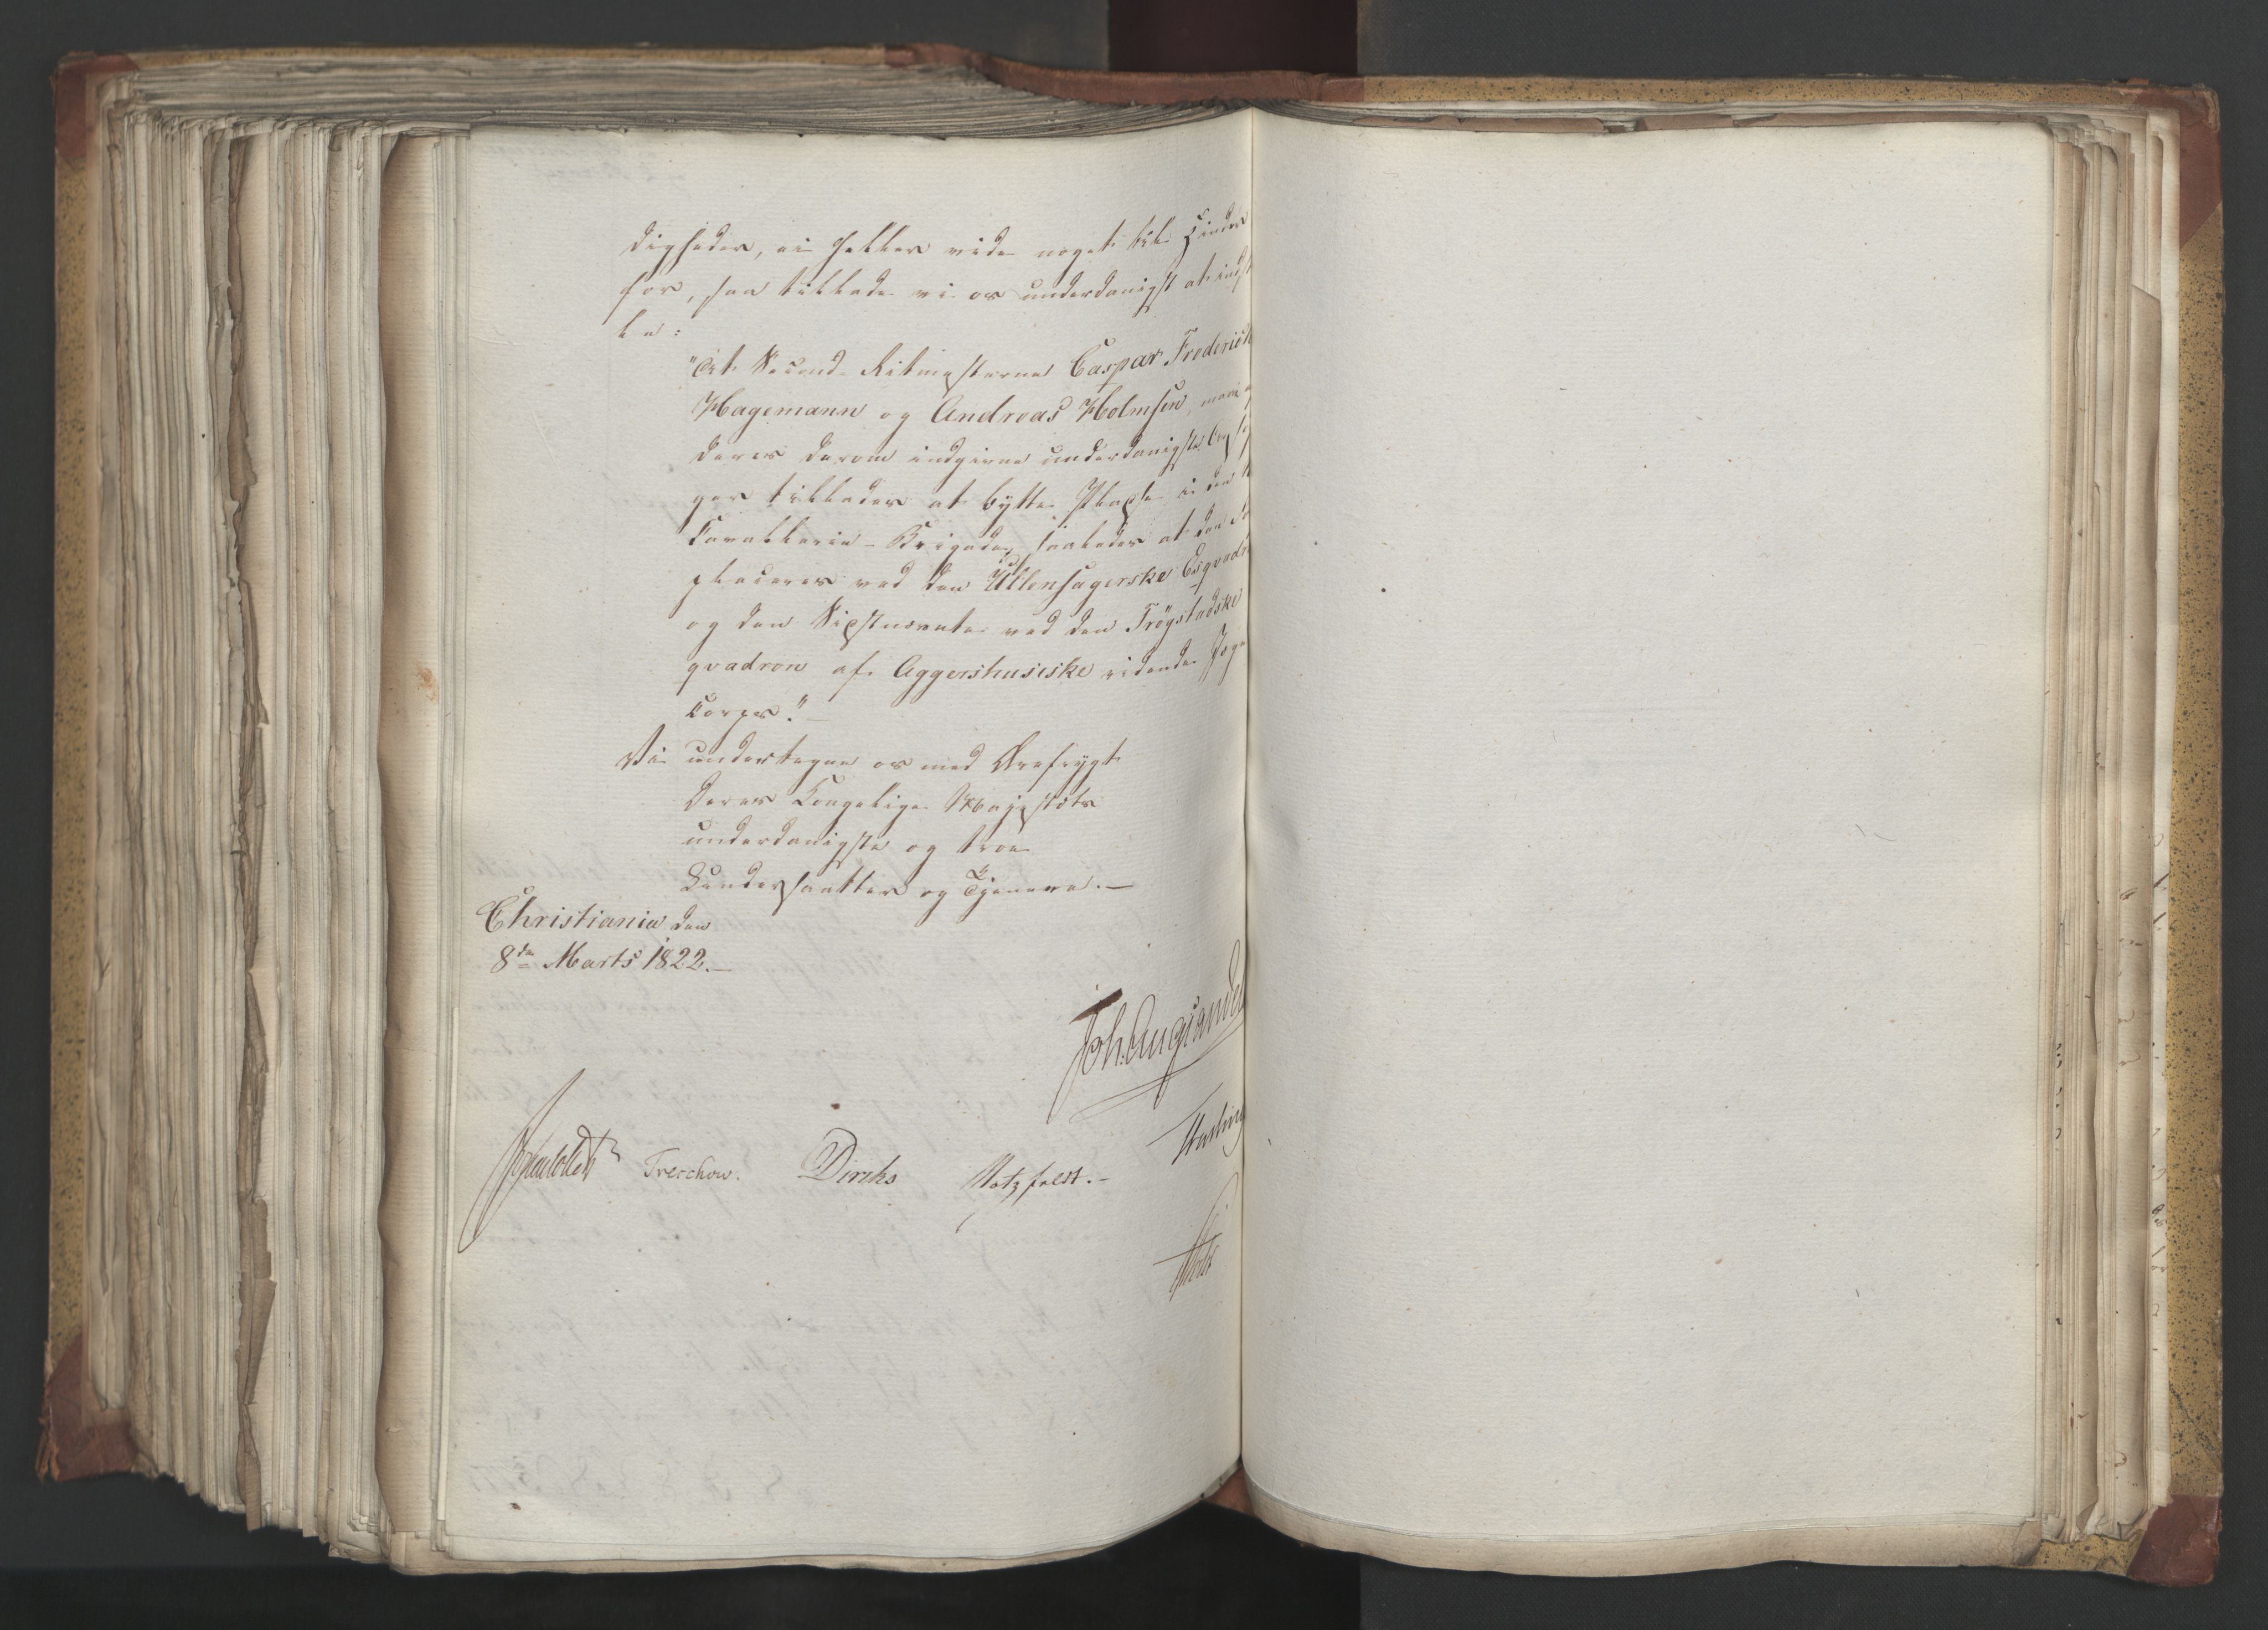 digheder, ei heller vide noget til Hinder
for, saa tillade vi os underdanigst at indst
le:
"At Second-Ritmesterne Caspar Frederich
Hagemann og Andreas Holmsen, maae
deres derom indgivne underdanigste
ger tillades at bytte Pladse i den
Cavallerie-Brigade, saaledes at den
placeres ved den Ullensagerske Esqvadr
og den Sidstnævnte ved den Trögstadske
qvadron af Aggershusiske ridende Jæge
Corps."—
Vi undertegne os med Ærefrygt
Deres Kongelige Majestæts
underdanigste og troe
Undersaatter og Tjenere.—
Christiania den
8de Marts 1822.—
Joh: Aug: Sandel
Treschow. Diriks Motzfeldt.–